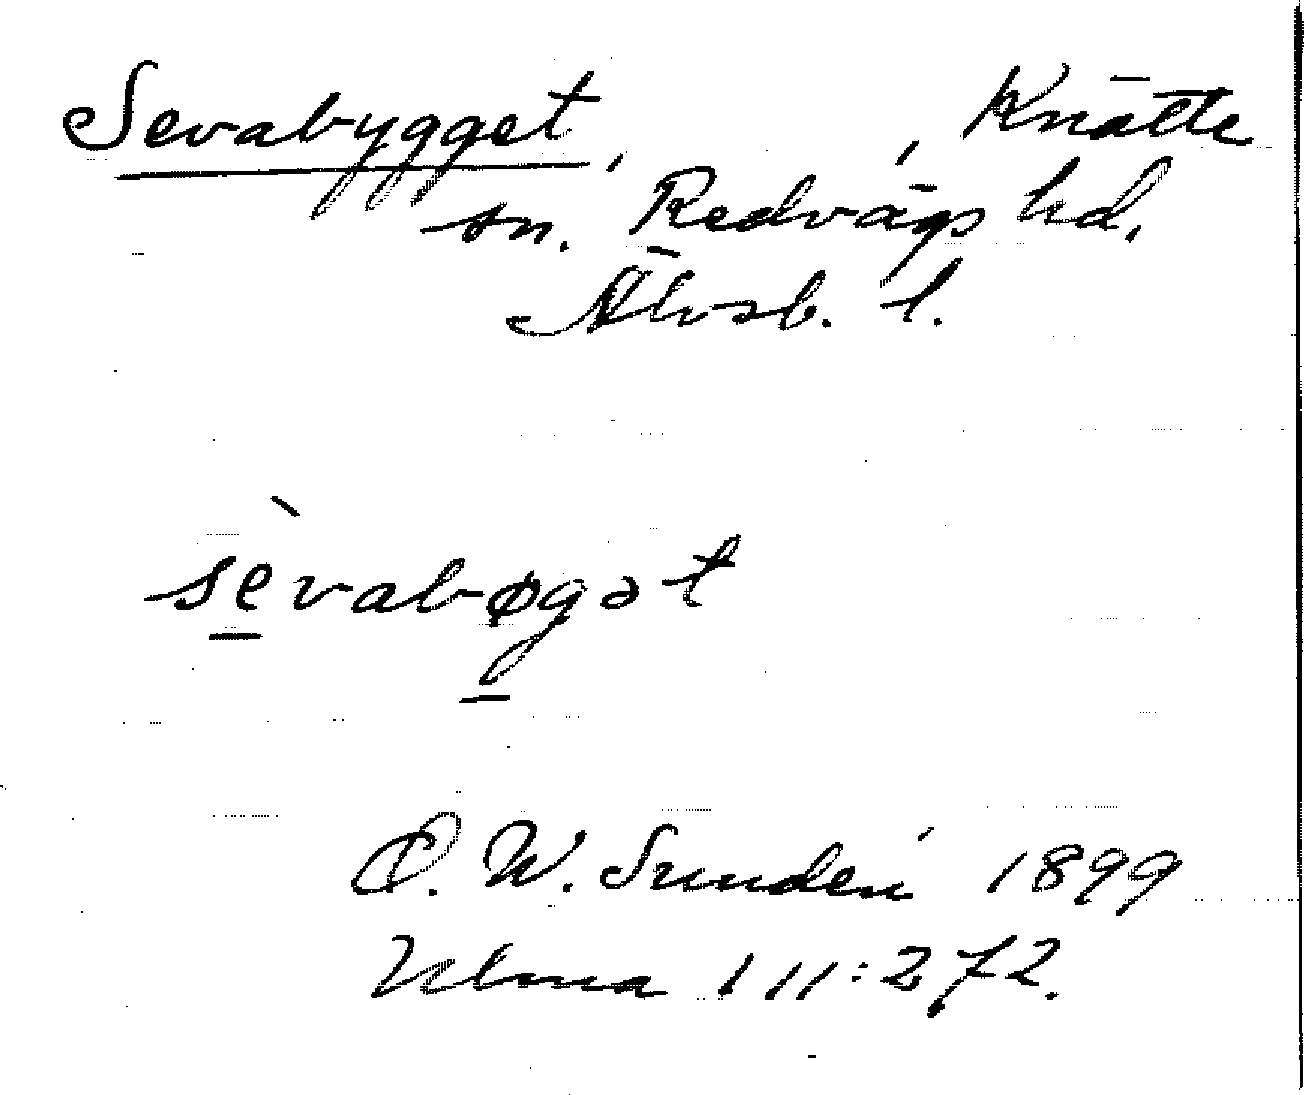 Sevabygget, , Knätte
sn. Redvägs hd,
Älvsb. l.
sèvabøgət
D. W. Sundén 1899
Ulma 111:272.